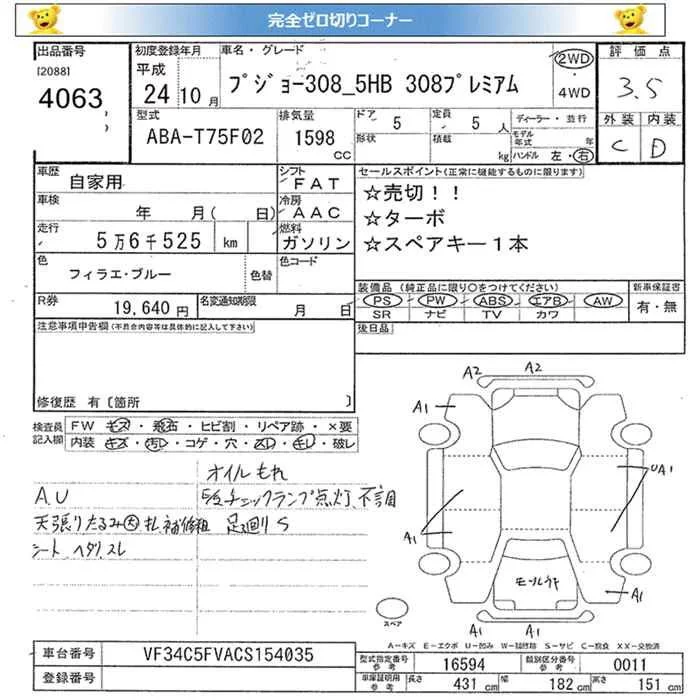 完全ゼロ切りコーナー
出品番号 初度登録年月 車名・グレード 評価点
[2088] 平成 プジョー308_5HB 308プレミアム 2WD ・ 4WD 3.5
4063 24 10月
型式 排気量 ドア 定員 ディーラー・並行 外装 内装
ABA-T75F02 1598 CC 5 5人 モデル年式 年 C D
形状 積載 kg ハンドル 左・右
車歴 自家用 シフト FAT セールスポイント(正常に機能するものに限ります)
車検 年 月( 日) 冷房 AAC ☆売切!!
走行 5万6千525 km 燃料 ガソリン ☆ターボ
☆スペアキー1本
色 フィラエ・ブルー 色替 色コード
装備品(純正品に限り○をつけてください) 新車保証書
R券 19,640円 名変通知期限 月 日 PS PW ABS エアB AW 有・無
SR ナビ TV カワ
注意事項申告欄(不具合内容等は具体的に記入して下さい) 後日品
修復歴 有[箇所 ]
検査員記入欄 FW キズ・飛石・ヒビ割・リペア跡・×要
内装 キズ・汚レ・コゲ・穴・スレ・キレ・破レ
オイルもれ
A.U チェックランプ点灯、不調
天張りたるみ大 足廻りS
シート ヘタリ、スレ
A2 A2
A1
UA1
A1
A1
A1 A1
スペア
A-キズ E-エクボ U-凹み W-補修跡 S-サビ C-腐食 XX-交換済
車台番号 VF34C5FVACS154035 型式指定番号 参考 16594 類別区分番号 参考 0011
登録番号 車庫証明用 参考 長さ 431cm 幅 182cm 高さ 151cm